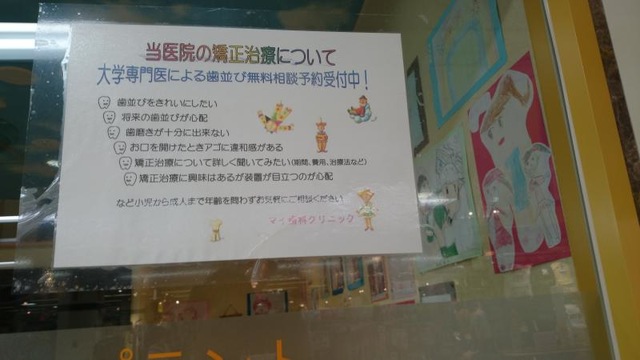 当医院の矯正治療について
大学専門医による歯並び無料相談予約受付中!
歯並びをきれいにしたい
将来の歯並びが心配
歯磨きが十分に出来ない
お口を開けたときアゴに違和感がある
矯正治療について詳しく聞いてみたい(期間、費用、治療法など)
矯正治療に興味はあるが装置が目立つのが心配
など小児から成人まで年齢を問わずお気軽にご相談ください
マイ歯科クリニック